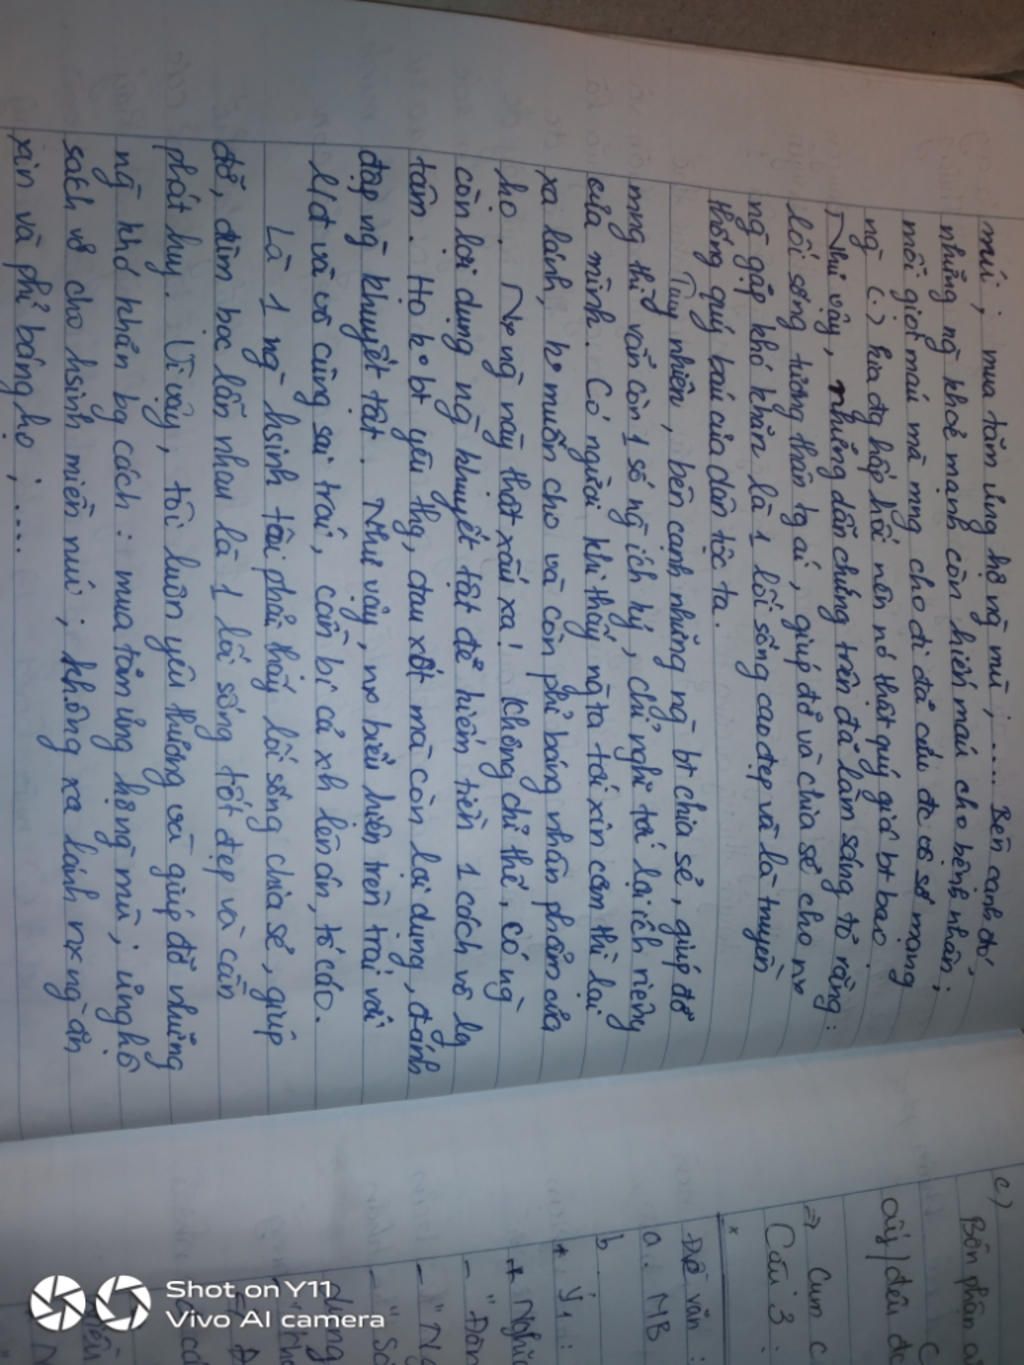 núi ; mua tăm ủng hộ ng mù ; ..... Bên cạnh đó,
những ng khoẻ mạnh còn hiến máu cho bệnh nhân ;
mỗi giọt máu mà mng cho đi đã cứu đc cs số mạng
ng (.) hia đg hấp hối nên nó thật quý giá bt bao .
Như vậy, những dẫn chứng trên đã làm sáng tỏ rằng :
lối sống tương thân tg ái, giúp đỡ và chia sẻ cho nx
ng gặp khó khăn là 1 lối sống cao đẹp và là truyền
thống quý báu của dân tộc ta.
Tuy nhiên, bên cạnh những ng bt chia sẻ, giúp đỡ
mng thì vẫn còn 1 số ng ích kỷ, chỉ nghĩ tới lợi ích riêng
của mình. Có người khi thấy ng ta tới xin cơm thì lại
xa lánh, ko muốn cho và còn phỉ báng nhân phẩm của
họ. Nx ng này thật xấu xa! Không chỉ thế, có ng
còn lợi dụng ng khuyết tật để kiếm tiền 1 cách vô lg
tâm. Họ ko bt yêu thg, đau xót mà còn lợi dụng, đánh
đập ng khuyết tật. Như vậy, nx biểu hiện trên trái với
lđ và vô cùng sai trái, cần bị cả xh lên án, tố cáo.
Là 1 ng hsinh tôi phải thấy lối sống chia sẻ, giúp
đỡ, đùm bọc lẫn nhau là 1 lối sống tốt đẹp và cần
phát huy. Vì vậy, tôi luôn yêu thương và giúp đỡ những
ng khó khăn bg cách : mua tăm ủng hộ ng mù ; ủng hộ
sách vở cho hsinh miền núi ; không xa lánh nx ng ăn
xin và phỉ báng họ ; .....
c) Bổn phận
ấy/đều đ
⇒ Cụm c
Câu 3 :
* Đề văn :
a. MB
b.
+ Ý1 :
+ Nghĩa
- "Đoàn
Shot on Y11
Vivo AI camera